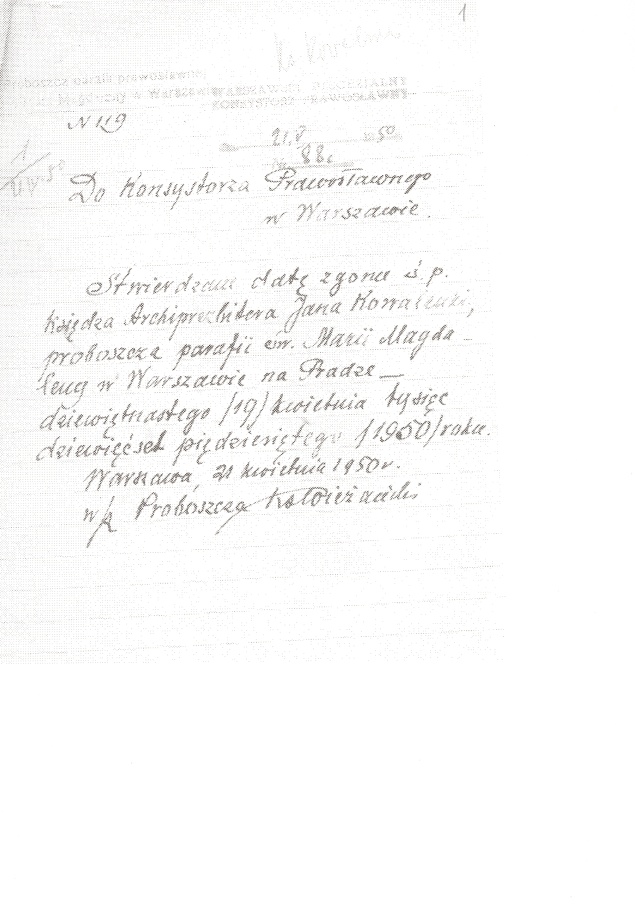 1
Ks Kowalenki
Proboszcz parafii prawosławnej
Magdaleny w Warszawie
WARSZAWSKI DIECEZJALNY
KONSYSTORZ PRAWOSŁAWNY
N 119
21.V 1950
№ 88
Do Konsystorza Prawosławnego
w Warszawie.
Stwierdzam datę zgonu ś.p.
księdza Archiprezbitera Jana Kowalenki,
proboszcza parafii św. Marii Magda-
leny w Warszawie na Pradze —
dziewiętnastego /19/ kwietnia tysięc
dziewięćset pięćdziesiętego /1950/ roku.
Warszawa, 21 kwietnia 1950 r.
w/z Proboszcza